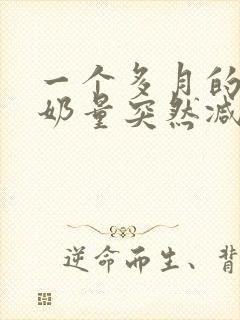 一个多月的
奶量突然减
逆命而生、背